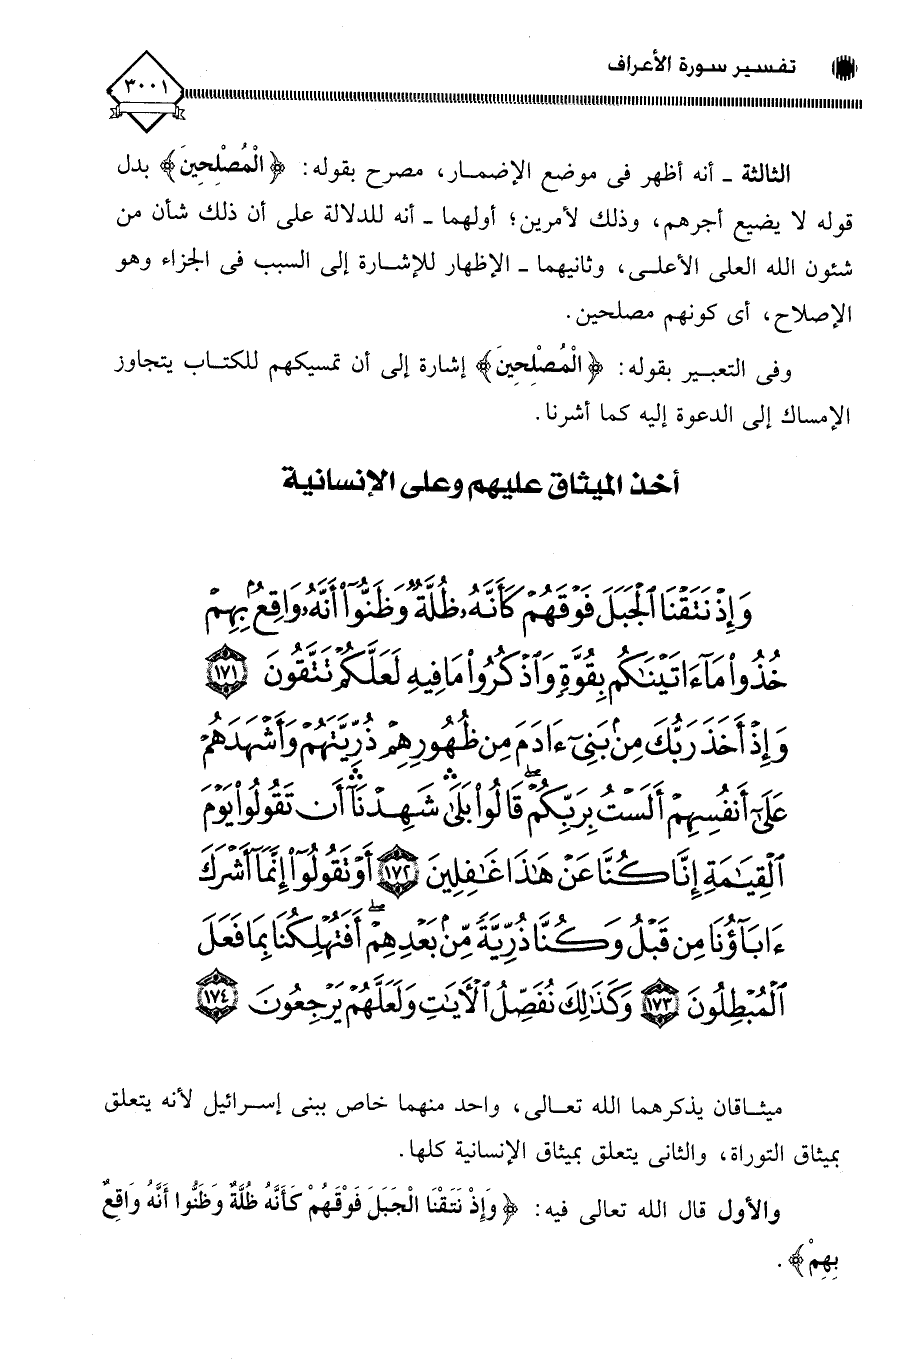 تفسير سورة الأعراف
٣٠٠١
الثالثة ـ أنه أظهر فى موضع الإضمـار، مصرح بقوله: ﴿الْمُصْلِحِينَ﴾ بدل
قوله لا يضيع أجرهم، وذلك لأمرين؛ أولهما ـ أنه للدلالة على أن ذلك شأن من
شئون الله العلى الأعلـى، وثانيهما ـ الإظهار للإشـارة إلى السبب فى الجزاء وهو
الإصلاح، أى كونهم مصلحين.
وفى التعبير بقوله: ﴿الْمُصْلِحِينَ﴾ إشارة إلى أن تمسيكهم للكتـاب يتجاوز
الإمساك إلى الدعوة إليه كما أشرنا.
أخذ الميثاق عليهم وعلى الإنسانية
وَإِذْ نَتَقْنَا ٱلْجَبَلَ فَوْقَهُمْ كَأَنَّهُۥ ظُلَّةٌ وَظَنُّوٓا۟ أَنَّهُۥ وَاقِعٌۢ بِهِمْ
خُذُوا۟ مَآ ءَاتَيْنَـٰكُم بِقُوَّةٍ وَٱذْكُرُوا۟ مَا فِيهِ لَعَلَّكُمْ تَتَّقُونَ ١٧١
وَإِذْ أَخَذَ رَبُّكَ مِنۢ بَنِىٓ ءَادَمَ مِن ظُهُورِهِمْ ذُرِّيَّتَهُمْ وَأَشْهَدَهُمْ
عَلَىٰٓ أَنفُسِهِمْ أَلَسْتُ بِرَبِّكُمْ ۖ قَالُوا۟ بَلَىٰ ۛ شَهِدْنَآ ۛ أَن تَقُولُوا۟ يَوْمَ
ٱلْقِيَـٰمَةِ إِنَّا كُنَّا عَنْ هَـٰذَا غَـٰفِلِينَ ١٧٢ أَوْ تَقُولُوٓا۟ إِنَّمَآ أَشْرَكَ
ءَابَآؤُنَا مِن قَبْلُ وَكُنَّا ذُرِّيَّةً مِّنۢ بَعْدِهِمْ ۖ أَفَتُهْلِكُنَا بِمَا فَعَلَ
ٱلْمُبْطِلُونَ ١٧٣ وَكَذَٰلِكَ نُفَصِّلُ ٱلْـَٔايَـٰتِ وَلَعَلَّهُمْ يَرْجِعُونَ ١٧٤
ميثـاقان يذكرهمـا الله تعـالى، واحد منهما خاص ببنى إسـرائيل لأنه يتعلق
بميثاق التوراة، والثانى يتعلق بميثاق الإنسانية كلها.
والأول قال الله تعالى فيه: ﴿وَإِذْ نَتَقْنَا الْجَبَلَ فَوْقَهُمْ كَأَنَّهُ ظُلَّةٌ وَظَنُّوا أَنَّهُ وَاقِعٌ
بِهِمْ﴾.